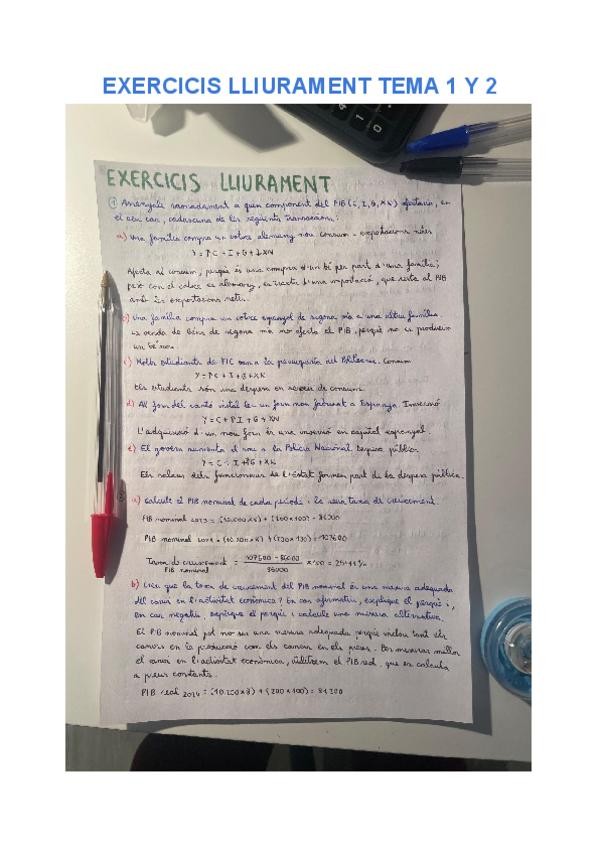 EXERCICIS LLIURAMENT TEMA 1 Y 2
EXERCICIS LLIURAMENT
① Assenyala raonadament a quin component del PIB (C, I, G, XN) afectaria, en
el seu cas, cadascuna de les següents transaccions:
a) Una família compra un cotxe alemany nou. Consum - exportacions netes
Y = ↑C + I + G + ↓XN
Afecta al consum, perquè és una compra d'un bé per part d'una família;
però com el cotxe es alemany, es tracta d'una importació, que resta al PIB
amb les exportacions netes.
b) Una família compra un cotxe espanyol de segona mà a una altra família.
La venda de béns de segona mà no afecta el PIB, perquè no es produeix
un bé nou.
c) Molts estudiants de van a la perruqueria Consum
Y = ↑C + I + G + XN
Els estudiants són una despesa en serveis de consum.
d) Al forn del cantó instal·len un forn nou fabricat a Espanya. Inversió
Y = C + ↑I + G + XN
L'adquisició d'un nou forn és una inversió en capital espanyol.
e) El govern augmenta el sou a la Policia Nacional. Despesa pública.
Y = C + I + ↑G + XN
Els salaris dels funcionaris de l'Estat formen part de la despesa pública.
a) Calcule el PIB nominal de cada període i la seua taxa de creixement.
PIB nominal = + = 86000
PIB nominal = + = 107600
Taxa de creixement PIB nominal = 107600 - 86000 / 86000 x 100 =
b) Creu que la taxa de creixement del PIB nominal és una mesura adequada
del canvi en l'activitat econòmica? En cas afirmatiu, explique el perquè i,
en cas negatiu, explique el perquè i calcule una mesura alternativa.
El PIB nominal pot no ser una mesura adequada perquè inclou tant els
canvis en la producció com els canvis en els preus. Per mesurar millor
el canvi en l'activitat econòmica, utilitzem el PIB real, que es calcula
a preus constants.
PIB real 2014 = + (200 x 100) =